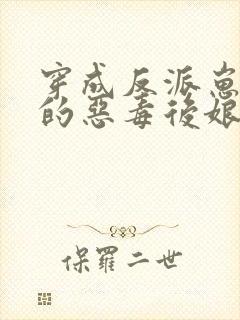 穿成反派崽
的惡毒後娘
保羅二世